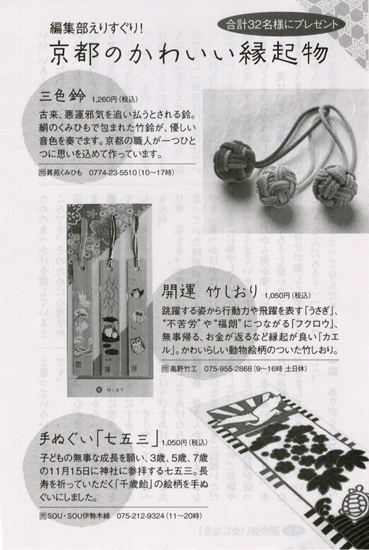 編集部えりすぐり!
合計32名様にプレゼント
京都のかわいい縁起物
三色鈴 1,260円(税込)
古来、悪運邪気を追い払うとされる鈴。
絹のくみひもで包まれた竹鈴が、優しい
音色を奏でます。京都の職人が一つひと
つに思いを込めて作っています。
問昇苑くみひも 0774-23-5510(10〜17時)
開運 竹しおり 1,050円(税込)
跳躍する姿から行動力や飛躍を表す「うさぎ」、
“不苦労”や“福朗”につながる「フクロウ」、
無事帰る、お金が返るなど縁起が良い「カエ
ル」。かわいらしい動物絵柄のついた竹しおり。
問高野竹工 075-955-2868(9〜16時 土日休)
手ぬぐい「七五三」1,050円(税込)
子どもの無事な成長を願い、3歳、5歳、7歳
の11月15日に神社に参拝する七五三。長
寿を祈っていただく「千歳飴」の絵柄を手ぬ
ぐいにしました。
問SOU・SOU伊勢木綿 075-212-9324(11〜20時)